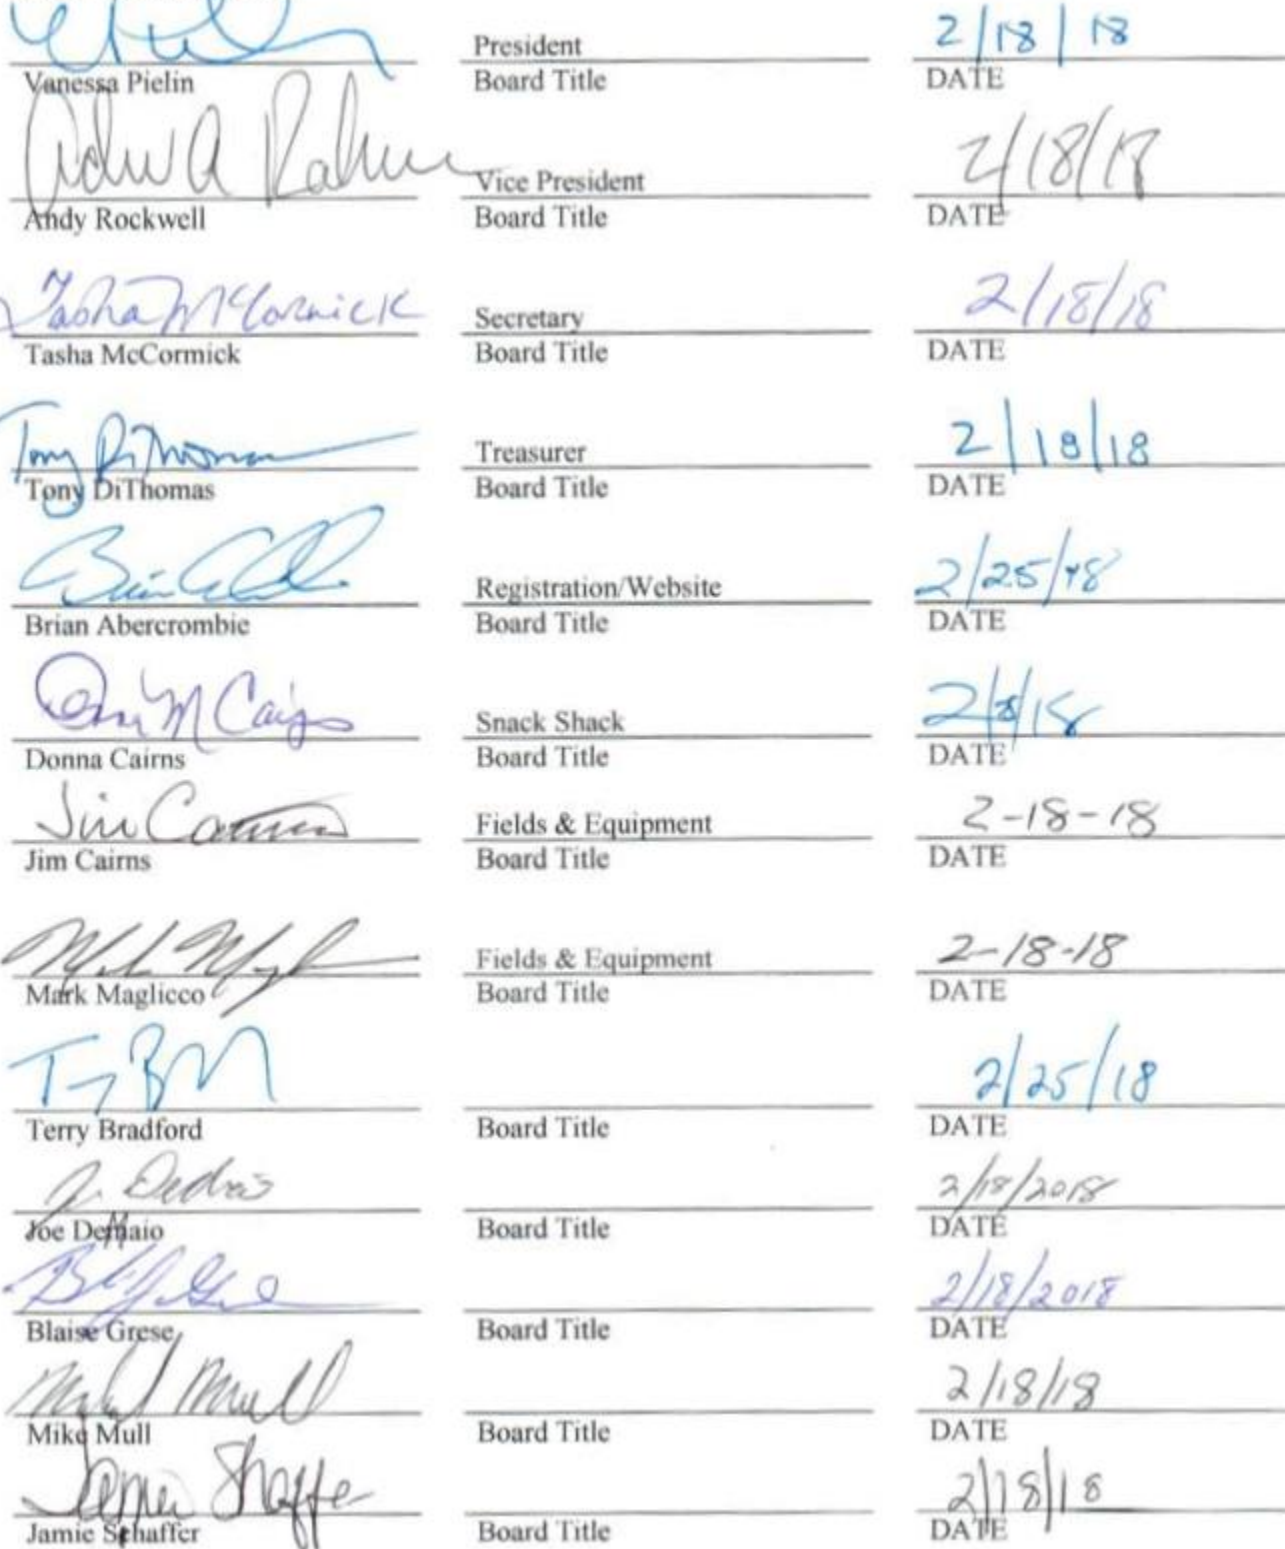 President 2/18/18
Vanessa Pielin Board Title DATE
Vice President 2/18/18
Andy Rockwell Board Title DATE
Tasha McCormick Secretary 2/18/18
Tasha McCormick Board Title DATE
Tony DiThomas Treasurer 2/18/18
Tony DiThomas Board Title DATE
Registration/Website 2/25/18
Brian Abercrombie Board Title DATE
Snack Shack
Donna Cairns Board Title DATE
Jim Cairns Fields & Equipment 2-18-18
Jim Cairns Board Title DATE
Fields & Equipment 2-18-18
Mark Maglicco Board Title DATE
2/25/18
Terry Bradford Board Title DATE
2/18/2018
Joe DeMaio Board Title DATE
2/18/2018
Blaise Grese Board Title DATE
Mull 2/18/18
Mike Mull Board Title DATE
Jamie Shaffer 2/18/18
Jamie Schaffer Board Title DATE